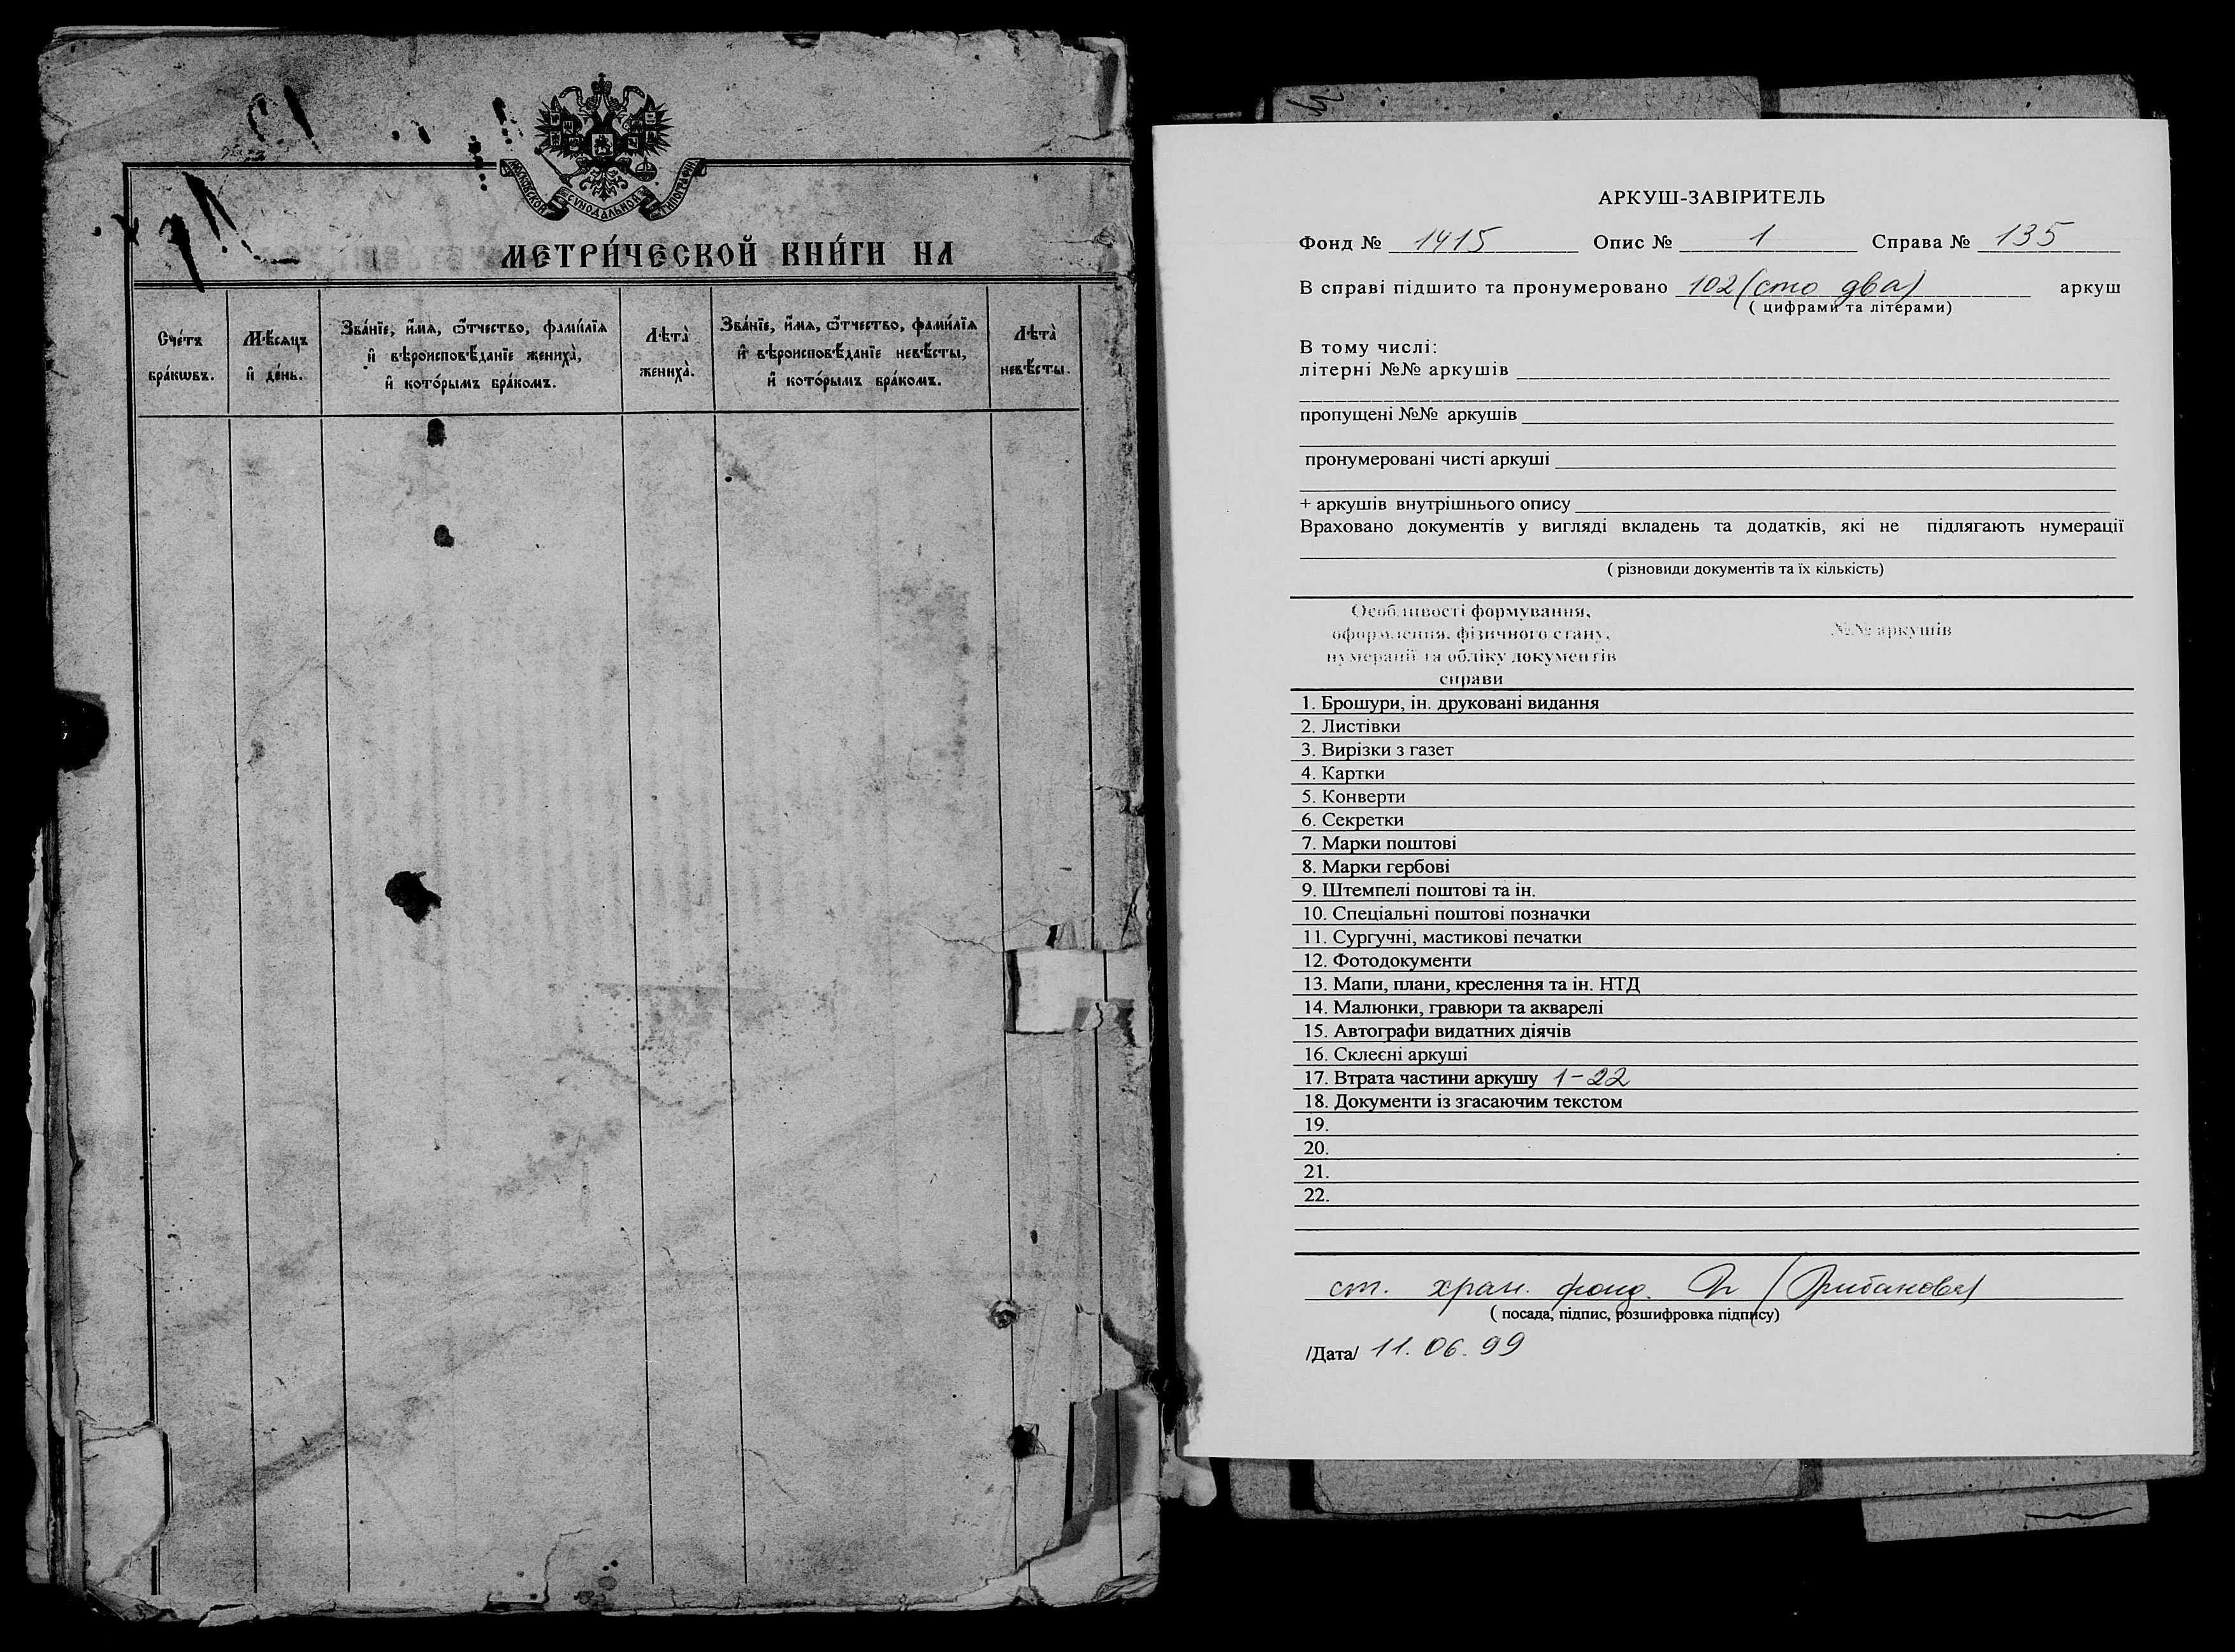 МОСКОВСКОЙ СѴНОДАЛЬНОЙ ТИПОГРАФІИ
МЕТРИ́ЧЕСКОЙ КНИ́ГИ НА
Сче́тъ бра́кѡвъ.
Мѣ́сѧцъ и҆ де́нь.
Зва́нїе, и҆́мѧ, ѻ҆́тчество, фами́лїѧ
и҆ вѣроисповѣ́данїе жениха̀,
и҆ кото́рымъ бра́комъ.
Лѣта̀ жениха̀.
Зва́нїе, и҆́мѧ, ѻ҆́тчество, фами́лїѧ
и҆ вѣроисповѣ́данїе невѣ́сты,
и҆ кото́рымъ бра́комъ.
Лѣта̀ невѣ́сты.
АРКУШ-ЗАВІРИТЕЛЬ
Фонд № 1415 Опис № 1 Справа № 135
В справі підшито та пронумеровано 102 (сто два) аркуш
( цифрами та літерами)
В тому числі:
літерні №№ аркушів
пропущені №№ аркушів
пронумеровані чисті аркуші
+ аркушів внутрішнього опису
Враховано документів у вигляді вкладень та додатків, які не підлягають нумерації
( різновиди документів та їх кількість)
Особливості формування,
оформлення, фізичного стану,
нумерації та обліку документів
справи
№№ аркушів
1. Брошури, ін. друковані видання
2. Листівки
3. Вирізки з газет
4. Картки
5. Конверти
6. Секретки
7. Марки поштові
8. Марки гербові
9. Штемпелі поштові та ін.
10. Спеціальні поштові позначки
11. Сургучні, мастикові печатки
12. Фотодокументи
13. Мапи, плани, креслення та ін. НТД
14. Малюнки, гравюри та акварелі
15. Автографи видатних діячів
16. Склеєні аркуші
17. Втрата частини аркушу 1-22
18. Документи із згасаючим текстом
19.
20.
21.
22.
ст. хран. фонд.
( посада, підпис, розшифровка підпису)
/Дата/ 11.06.99